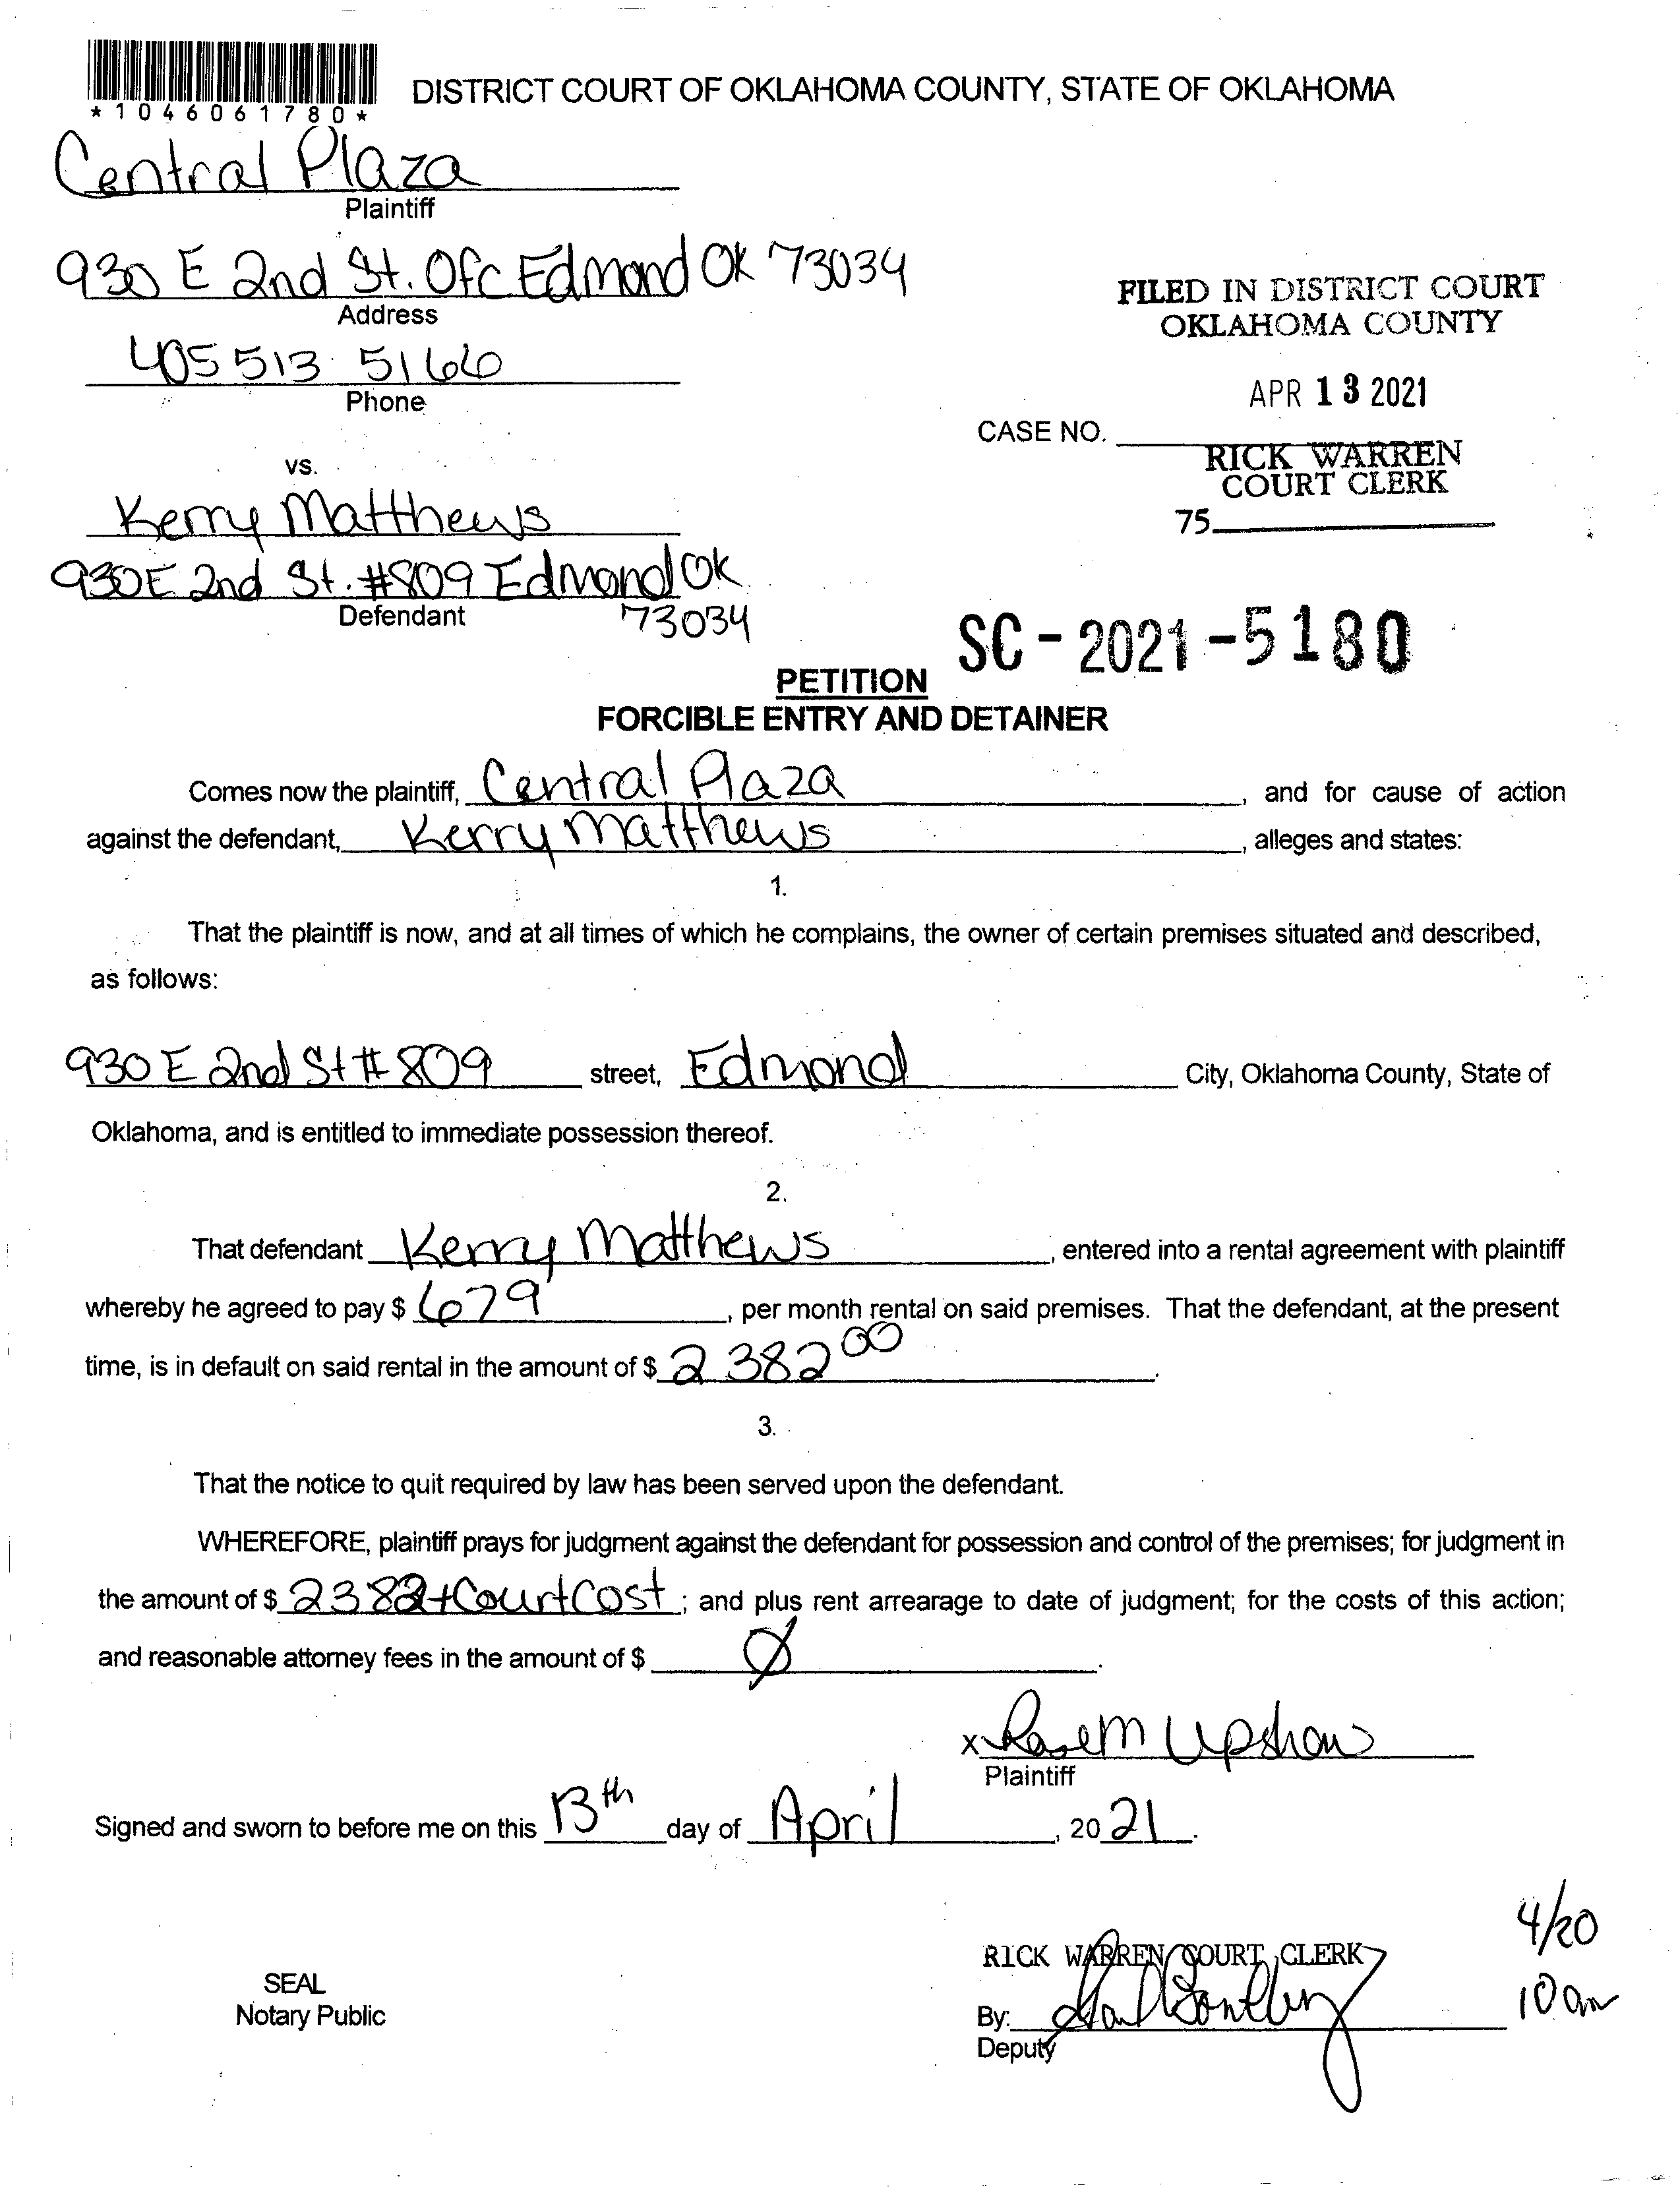 *1046061780*
DISTRICT COURT OF OKLAHOMA COUNTY, STATE OF OKLAHOMA
Central Plaza
Plaintiff
930 E 2nd St. Ofc Edmond OK 73034
Address
405 513 5166
Phone
FILED IN DISTRICT COURT
OKLAHOMA COUNTY
APR 13 2021
CASE NO.
RICK WARREN
COURT CLERK
75
vs.
Kerry Matthews
930 E 2nd St. #809 Edmond OK
Defendant
73034
SC-2021-5180
PETITION
FORCIBLE ENTRY AND DETAINER
Comes now the plaintiff, Central Plaza, and for cause of action
against the defendant, Kerry Matthews, alleges and states:
1.
That the plaintiff is now, and at all times of which he complains, the owner of certain premises situated and described,
as follows:
930 E 2nd St # 809 street, Edmond City, Oklahoma County, State of
Oklahoma, and is entitled to immediate possession thereof.
2.
That defendant Kerry Matthews, entered into a rental agreement with plaintiff
whereby he agreed to pay $ 679, per month rental on said premises. That the defendant, at the present
time, is in default on said rental in the amount of $ 2382 00.
3.
That the notice to quit required by law has been served upon the defendant.
WHEREFORE, plaintiff prays for judgment against the defendant for possession and control of the premises; for judgment in
the amount of $ 2382+Court Cost; and plus rent arrearage to date of judgment; for the costs of this action;
and reasonable attorney fees in the amount of $ Ø.
x Rose M Upshaw
Plaintiff
Signed and sworn to before me on this 13th day of April, 2021.
4/20
10am
RICK WARREN COURT CLERK
SEAL
Notary Public
By:
Deputy